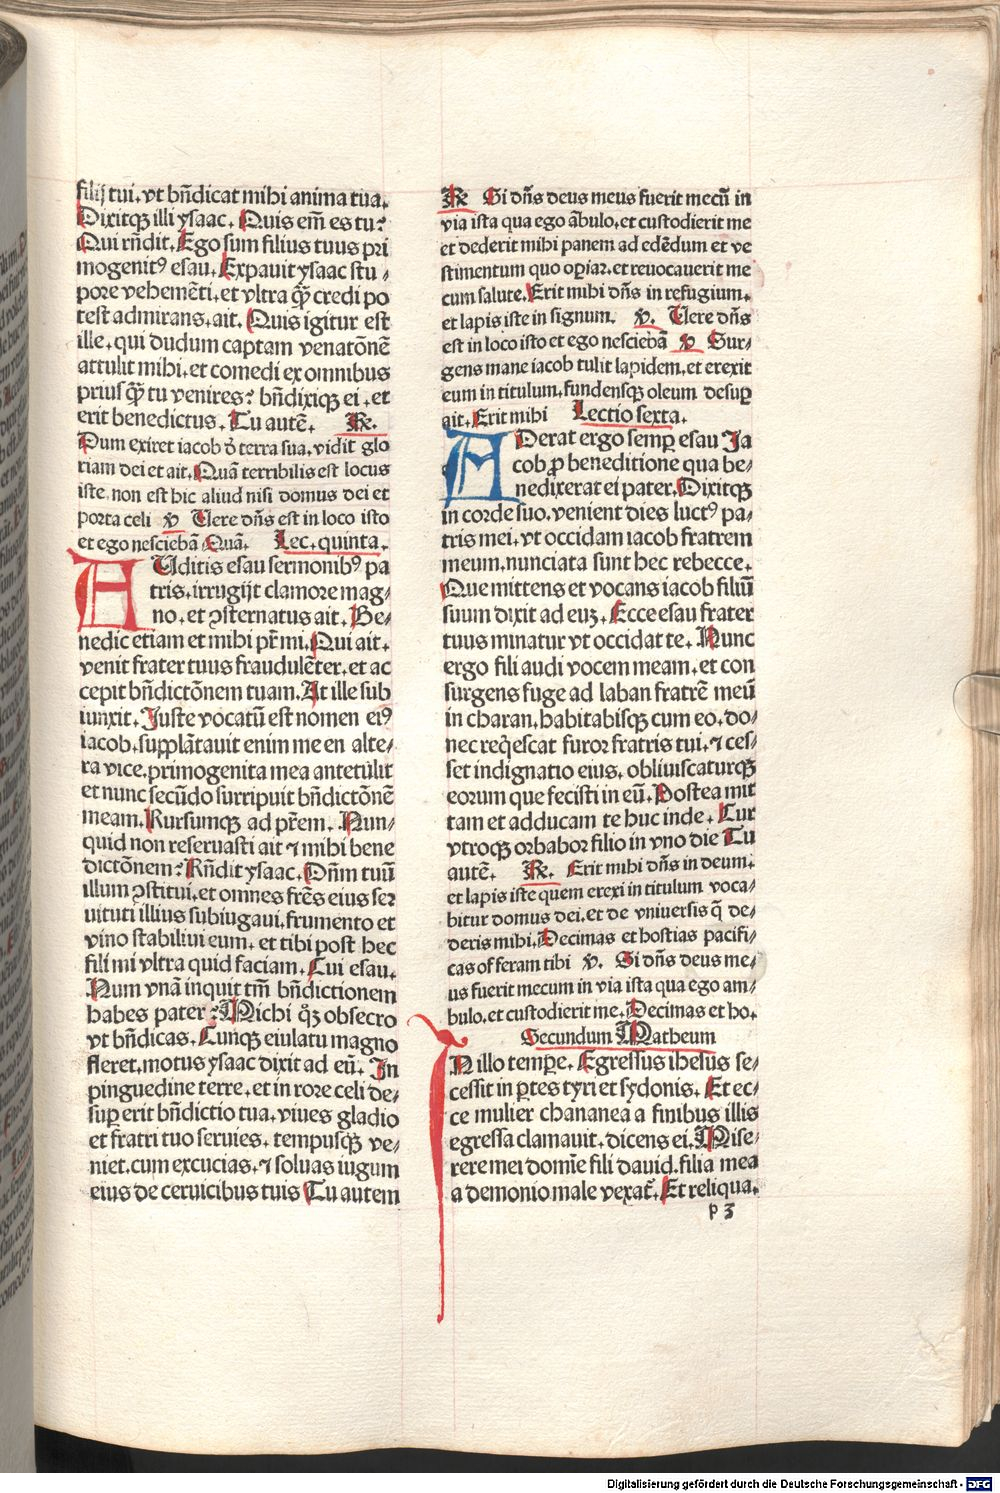 filij tui. vt bñdicat mihi anima tua.
Dixitqꝫ illi ysaac. Quis em̄ es tu?
Qui rñdit. Ego sum filius tuus pri
mogenitꝰ esau. Expauit ysaac stu/
pore vehemēti. et vltra qͣ̄ credi po
test admirans. ait. Quis igitur est
ille. qui dudum captam venatōnē
attulit mihi. et comedi ex omnibus
priusqͣ̄ tu venires? bñdixiqꝫ ei. et
erit benedictus. Tu autē. ℟.
Dum exiret iacob ď terra sua. vidit glo
riam dei et ait. Quā terribilis est locus
iste. non est hic aliud nisi domus dei et
porta celi ℣ Uere dñs est in loco isto
et ego nesciebā Quā. Lec. quinta.
AUditis esau sermonibꝰ pa
tris. irrugijt clamore mag/
no. et ꝯsternatus ait. Be/
nedic etiam et mihi pr̄ mi. Qui ait.
venit frater tuus fraudulēter. et ac
cepit bñdictōnem tuam. At ille sub
iunxit. Juste vocatū est nomen eiꝰ
iacob. supplātauit enim me en alte/
ra vice. primogenita mea antetulit
et nunc secūdo surripuit bñdictōnē
meam. Rursumqꝫ ad pr̄em. Nun/
quid non reseruasti ait ⁊ mihi bene
dictōnem? Rñdit ysaac. Dñm tuū
illum ꝯstitui. et omnes fr̄es eius ser
uituti illius subiugaui. frumento et
vino stabiliui eum. et tibi post hec
fili mi vltra quid faciam. Cui esau.
Num vnā inquit tm̄ bñdictionem
habes pater? Michi qͦꝫ obsecro
vt bñdicas. Cunqꝫ eiulatu magno
fleret. motus ysaac dixit ad eū. In
pinguedine terre. et in rore celi de/
suꝑ erit bñdictio tua. viues gladio
et fratri tuo seruies. tempusqꝫ ve/
niet. cum excucias. ⁊ soluas iugum
eius de ceruicibus tuis Tu autem
℟ Si dñs deus meus fuerit mecū in
via ista qua ego ābulo. et custodierit me
et dederit mihi panem ad edēdum et ve
stimentum quo oꝑiar. et reuocauerit me
cum salute. Erit mihi dñs in refugium.
et lapis iste in signum. ℣. Uere dñs
est in loco isto et ego nesciebā ℣ Sur/
gens mane iacob tulit lapidem. et erexit
eum in titulum. fundensqꝫ oleum desuꝑ
ait. Erit mihi Lectio sexta.
ADerat ergo semꝑ esau Ja
cob ꝓ beneditione qua be/
nedixerat ei pater. Dixitqꝫ
in corde suo. venient dies luctꝰ pa/
tris mei. vt occidam iacob fratrem
meum. nunciata sunt hec rebecce.
Que mittens et vocans iacob filiū
suum dixit ad euꝫ. Ecce esau frater
tuus minatur vt occidat te. Nunc
ergo fili audi vocem meam. et con
surgens fuge ad laban fratrē meū
in charan. habitabisqꝫ cum eo. do/
nec reqͥescat furor fratris tui. ⁊ ces/
set indignatio eius. obliuiscaturqꝫ
eorum que fecisti in eū. Postea mit
tam et adducam te huc inde. Cur
vtroqꝫ orbabor filio in vno die Tu
autē. ℟. Erit mihi dñs in deum.
et lapis iste quem erexi in titulum voca/
bitur domus dei. et de vniuersis q̄ de/
deris mihi. Decimas et hostias pacifi/
cas offeram tibi ℣. Si dñs deus me/
us fuerit mecum in via ista qua ego am/
bulo. et custodierit me. Decimas et ho.
Secundum Matheum
IN illo temꝑe. Egressus ihesus se/
cessit in ꝑtes tyri et sydonis. Et ec/
ce mulier chananea a finibus illis
egressa clamauit. dicens ei. Mise/
rere mei domīe fili dauid. filia mea
a demonio male vexat̄. Et reliqua.
p 3
Digitalisierung gefördert durch die Deutsche Forschungsgemeinschaft - DFG